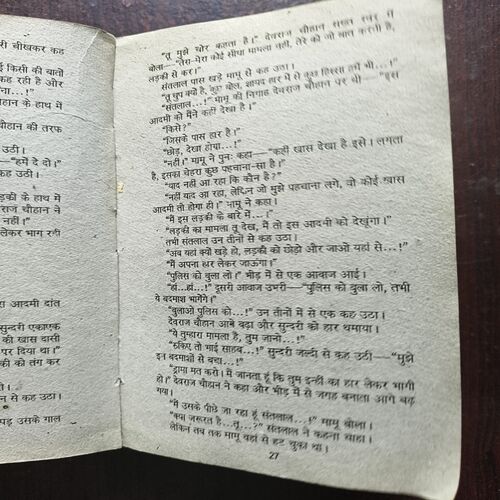 री चीखकर कह
ई किसी की बातों
कह रही है और
ना...!"
ौहान के हाथ में
चौहान की तरफ
कह उठी।
—"हमें दे दो।"
उठा।
लड़की के हाथ में
राज चौहान ने
नहीं।"
लेकर भाग रही
रा आदमी दांत
सुन्दरी एकाएक
की खास दासी
पर दिया था।"
की को तंग कर
े।
से कह उठा।
पड़ उसके गाल
"तू मुझे चोर कहता है।" देवराज चौहान सख्त स्वर में
बोला—"तेरा-मेरा कोई सीधा मामला नहीं, तेरे को जो बात करनी है,
लड़की से कर।"
संतलाल पास खड़े मामू से कह उठा।
"तू चुप क्यों है, कुछ बोल, शायद हार में से कुछ हिस्सा हमें भी...!"
"संतलाल...!" मामू की निगाह देवराज चौहान पर थी—"इस
आदमी को मैंने कहीं देखा है।"
"किसे?"
"जिसके पास हार है।"
"छोड़, देखा होगा...!"
"नहीं।" मामू ने पुनः कहा—"कहीं खास देखा है इसे। लगता
है, इसका चेहरा कुछ पहचाना-सा है।"
"याद नहीं आ रहा कि कौन है?"
"नहीं याद आ रहा, लेकिन जो मुझे पहचाना लगे, वो कोई खास
आदमी तो होगा ही।" मामू ने कहा।
"मैं इस लड़की के बारे में...।"
"लड़की का मामला तू देख, मैं तो इस आदमी को देखूंगा।"
तभी संतलाल उन तीनों से कह उठा।
"अब यहां क्यों खड़े हो, लड़की को छोड़ो और जाओ यहां से...!"
"मैं अपना हार लेकर जाऊंगा।"
"पुलिस को बुला लो।" भीड़ में से एक आवाज आई।
"हां-हां...!" दूसरी आवाज उभरी—"पुलिस को बुला लो, तभी
ये बदमाश भागेंगे।"
"बुलाओ पुलिस को...।" उन तीनों में से एक कह उठा।
देवराज चौहान आगे बढ़ा और सुन्दरी को हार थमाया।
"ये तुम्हारा मामला है, तुम जानो...!"
"रुकिए तो भाई साहब...!" सुन्दरी जल्दी से कह उठी—"मुझे
इन बदमाशों से बचा...!"
"ड्रामा मत करो। मैं जानता हूं कि तुम इन्हीं का हार लेकर भागी
हो।" देवराज चौहान ने कहा और भीड़ में से जगह बनाता आगे बढ़
गया।
"मैं उसके पीछे जा रहा हूं संतलाल...!" मामू बोला।
"क्या जरूरत है...तू...?" संतलाल ने कहना चाहा।
लेकिन तब तक मामू वहां से हट चुका था।
27